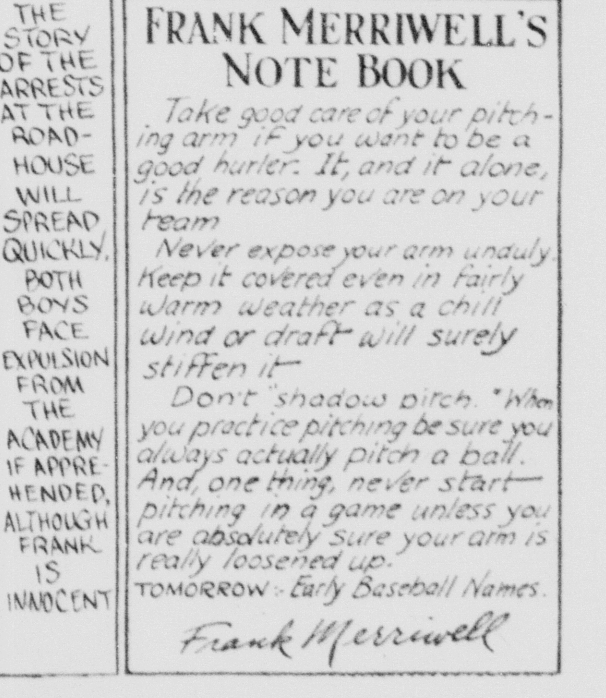 THE
STORY
OF THE
ARRESTS
AT THE
ROAD-
HOUSE
WILL
SPREAD
QUICKLY.
BOTH
BOYS
FACE
EXPULSION
FROM
THE
ACADEMY
IF APPRE-
HENDED,
ALTHOUGH
FRANK
IS
INNOCENT
FRANK MERRIWELL'S
NOTE BOOK
Take good care of your pitch-
ing arm if you want to be a
good hurler. It, and it alone,
is the reason you are on your
team
Never expose your arm unduly.
Keep it covered even in fairly
warm weather as a chill
wind or draft will surely
stiffen it
Don't "shadow pitch." When
you practice pitching be sure you
always actually pitch a ball.
And, one thing, never start
pitching in a game unless you
are absolutely sure your arm is
really loosened up.
TOMORROW:- Early Baseball Names.
Frank Merriwell